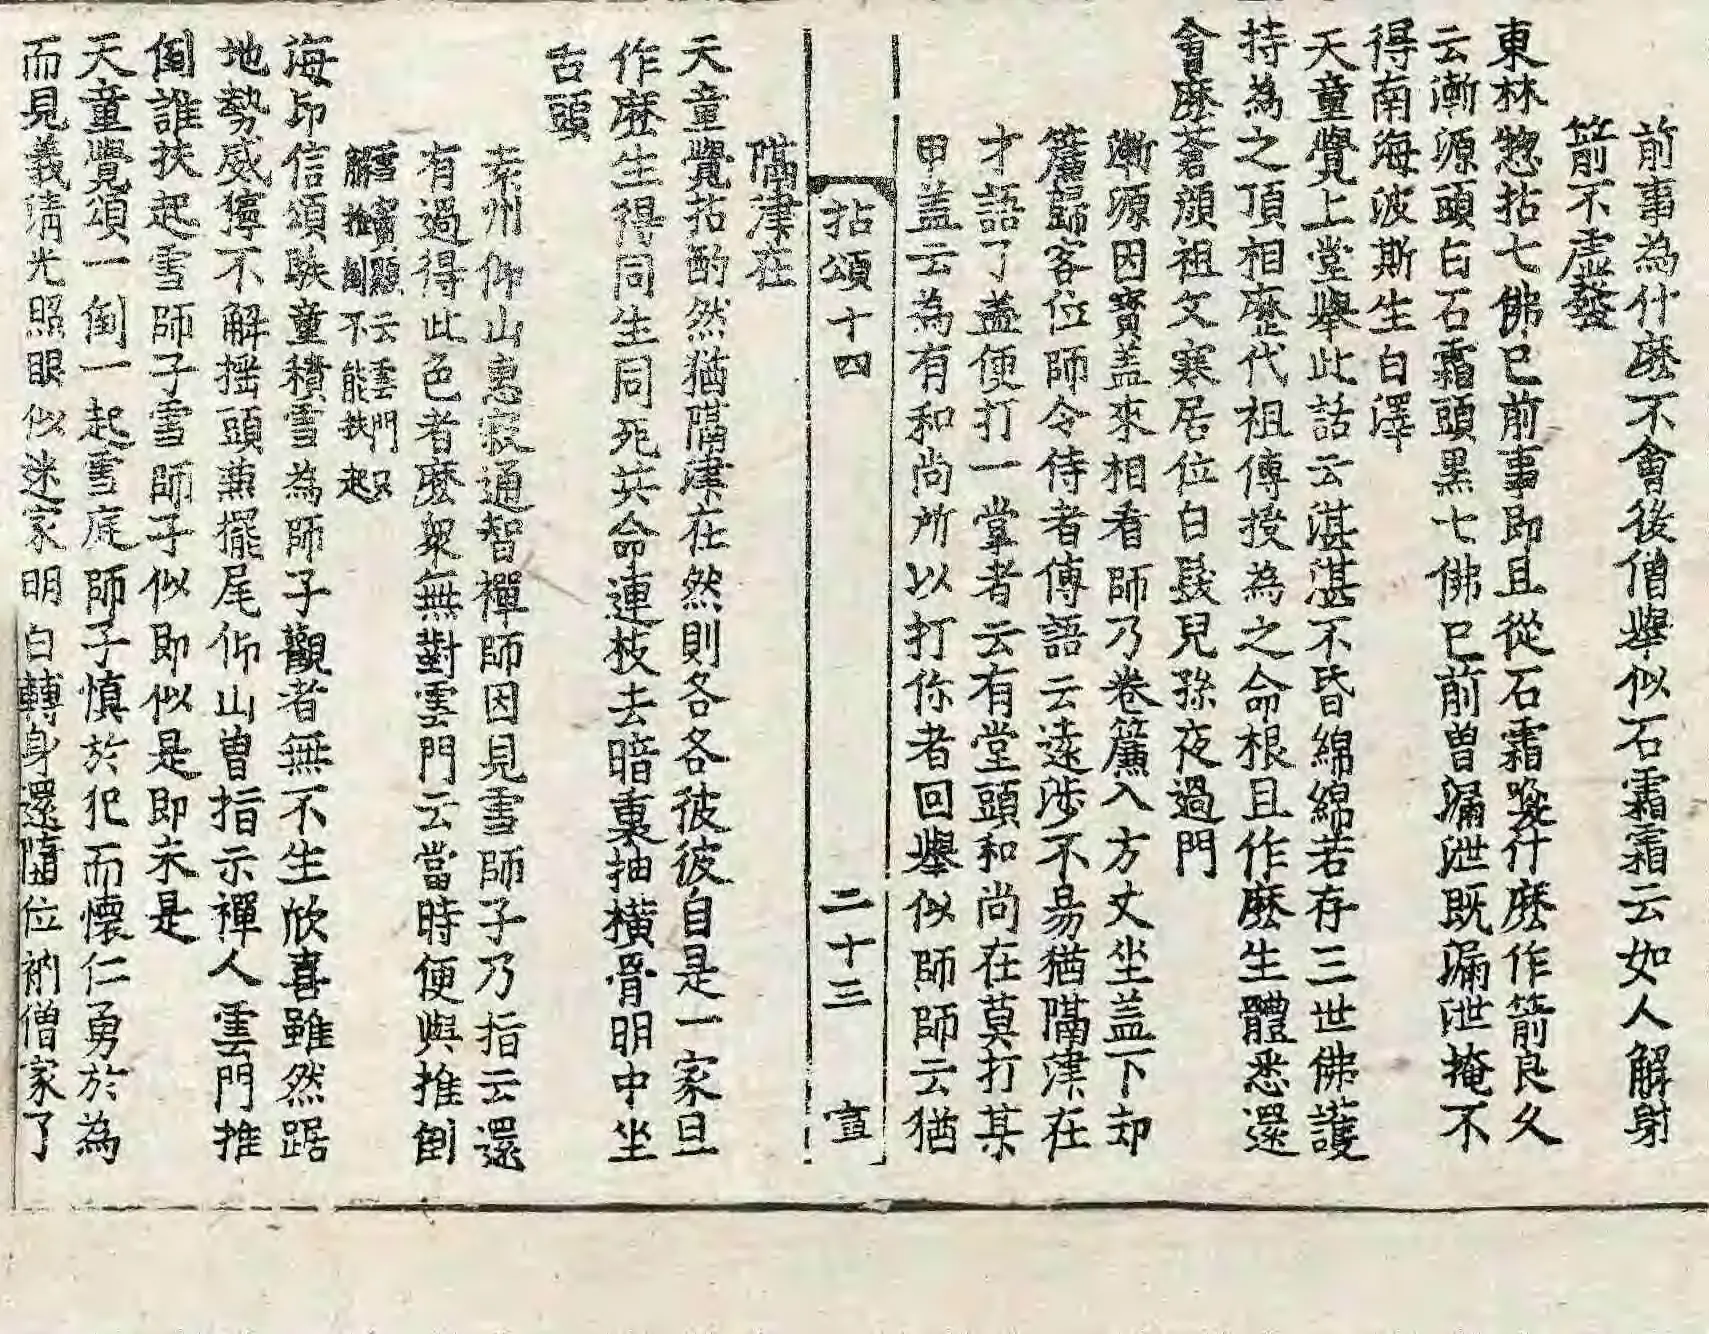 前事為什麽不會後僧舉似石霜霜云如人解射
箭不虛發
東林惣拈七佛已前事即且從石霜喚什麽作箭良久
云漸源頭白石霜頭黑七佛已前曽漏泄既漏泄掩不
得南海波斯生白澤
天童覺上堂舉此話云湛湛不昏綿綿若存三世佛護
持為之頂相歷代祖傳授為之命根且作麽生體悉還
會麽蒼顔祖父寒居位白髮兒孫夜過門
漸源因寶盖來相看師乃卷簾入方丈坐盖下却
簾歸客位師令侍者傳語云遠涉不易猶隔津在
才語了盖便打一掌者云有堂頭和尚在莫打某
甲盖云為有和尚所以打你者回舉似師師云猶
拈頌十四 二十三 宣
隔津在
天童覺拈酌然猶隔津在然則各各彼彼自是一家且
作麽生得同生同死共命連枝去暗裏抽橫骨明中坐
舌頭
素州仰山惠寂通智禪師因見雪師子乃指云還
有過得此色者麽衆無對雲門云當時便與推倒
雪竇顯云雲門只
解推倒不能扶起
海印信頌騃童積雪為師子觀者無不生欣喜雖然踞
地勢威獰不解揺頭兼擺尾仰山曽指示禪人雲門推
倒誰扶起雪師子雪師子似即似是即未是
天童覺頌一倒一起雪庭師子慎於犯而懷仁勇於為
而見義清光照眼似迷家明白轉身還墮位衲僧家了